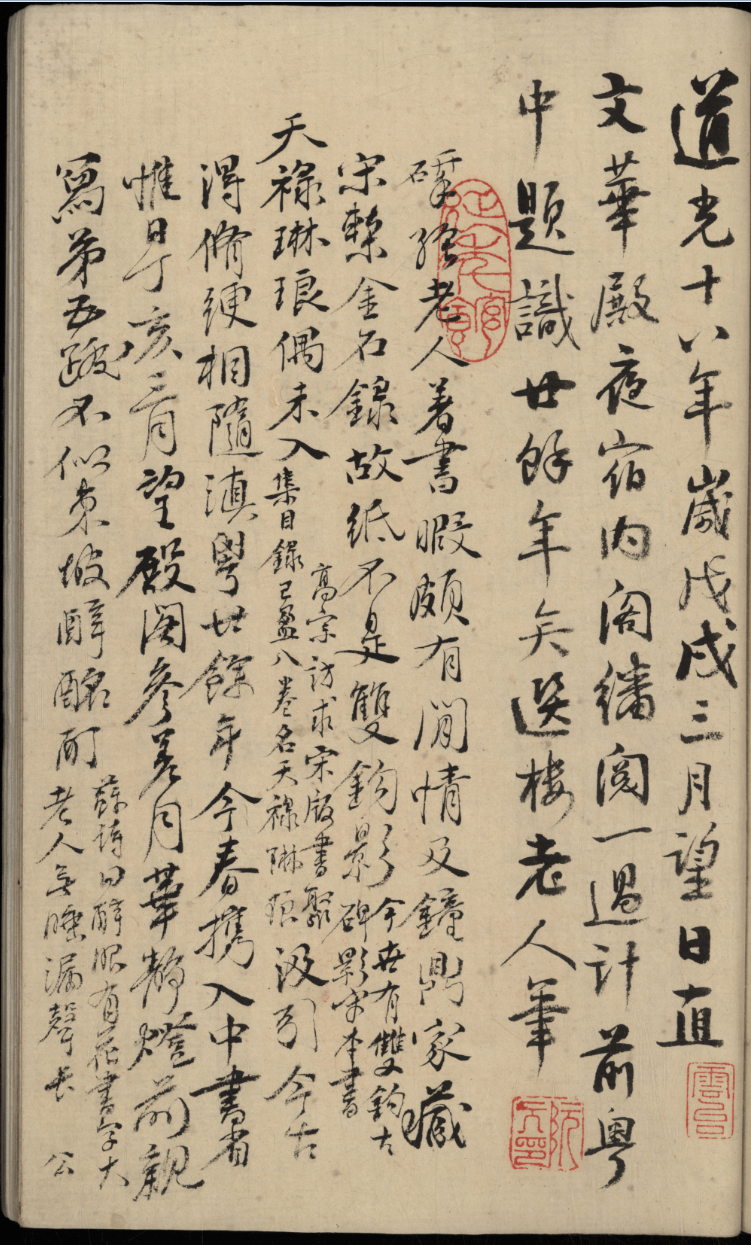 道光十八年歲戊戌三月望日直
文華殿夜宿內閣繙閱一過計前粵
中題識廿餘年矣選樓老人筆
雲台
阮元印
研經老人著書暇頗有閒情及鐘鼎家藏
宋槧金石錄故紙不是雙鉤影
今世有雙鉤古
碑影宋本書
天祿琳琅偶未入
高宗訪求宋版書聚
集目錄已盈八卷名天祿琳琅
汲引今古
得脩綆相隨滇粵廿餘年今春攜入中書省
惟是丁亥三月望殿閣參差月華靜燈前親
寫第五跋不似東坡醉醲酊
蘇詩曰醉眼有花書字大
老人無睡漏聲長
公